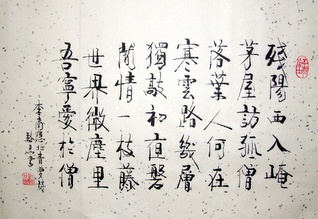 殘陽西入崦
茅屋訪孤僧
落葉人何在
寒雲路幾層
獨敲初夜磬
閒情一枝藤
世界微塵里
吾寧愛於僧
李商隱北青蘿